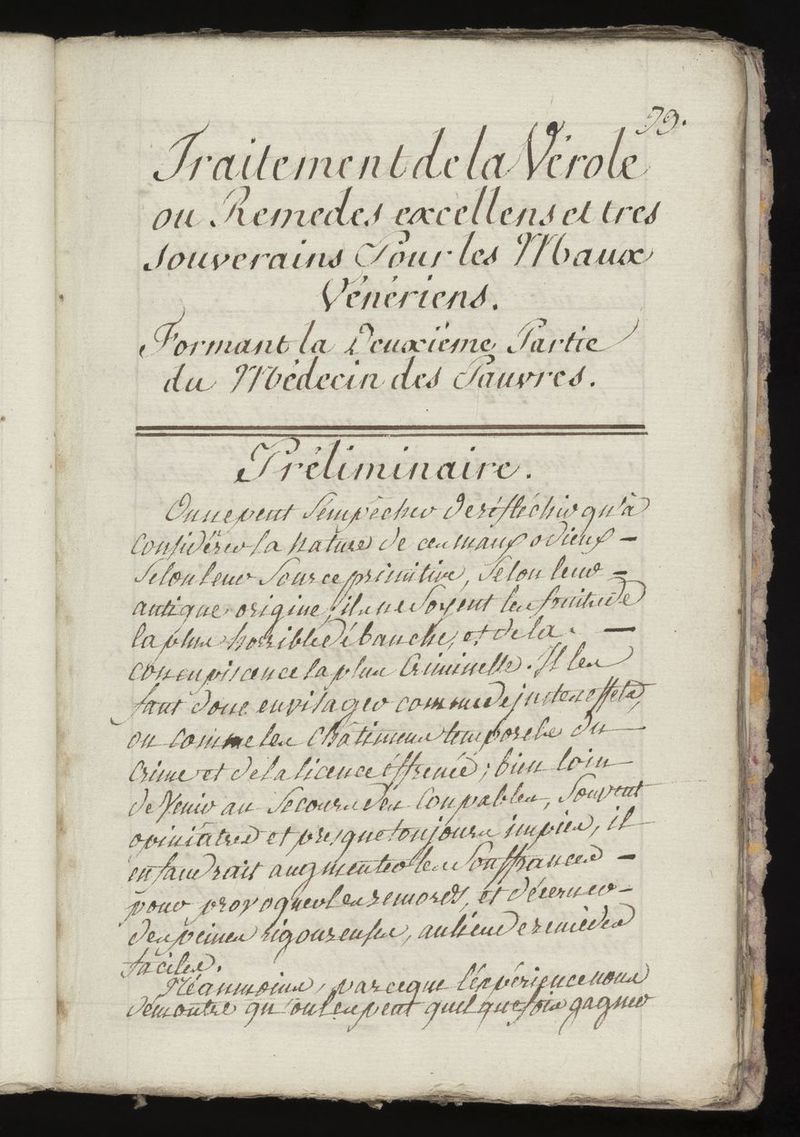 99.
Traitement de la Vérole
ou Remedes excellens et tres
souverains Pour les Maux
Vénériens.
Formant la Deuxiëme Partie
du Médecin des Pauvres.
Préliminaire.
On ne peut s'empêcher de réfléchir qu'à
considérer la nature de ces maux odieux –
Selon leur Source primitive, Selon leur =
antique origine, ils ne Soyent les fruits de
la plus horrible débauche, et de la –
concupiscence la plus Criminelle. Il les
faut donc envisager comme de justes effets,
ou comme les Châtimens temporels du
Crime et de la licence éffrenée; bien loin
de Venir au Secours des Coupables, Souvent
opiniâtres et presque toujours impies, il
en faudrait augmenter les Souffrances –
pour provoquer les remords, et décerner –
des peines rigoureuses, au lieu de remèdes
faciles.
Néanmoins, parceque l'éxpérience nous
démontre qu'on les peut quelquefois gagner